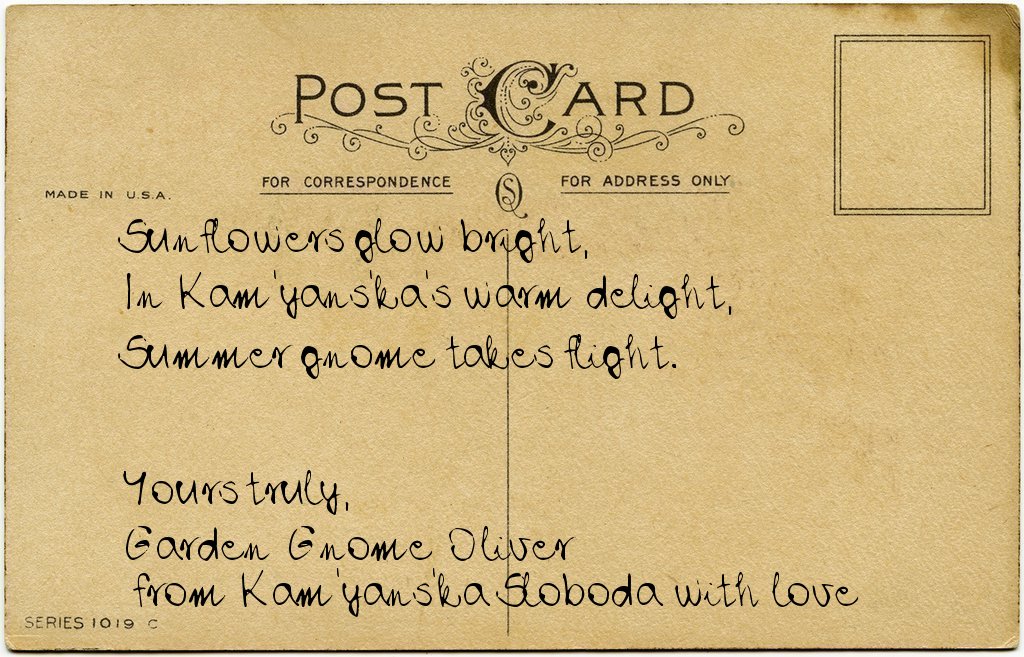 POST CARD
FOR CORRESPONDENCE
FOR ADDRESS ONLY
MADE IN U.S.A.
Sunflowers glow bright,
In Kam'yans'ka's warm delight,
Summer gnome takes flight.
Yours truly,
Garden Gnome Oliver
from Kam'yans'ka Sloboda with love
SERIES 1019 C